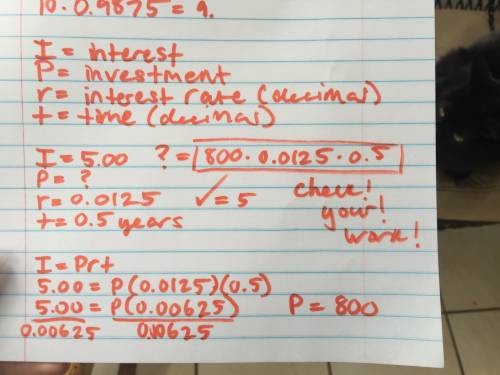 10 · 0.9875 = 9.
I = interest
P = investment
r = interest rate (decimal)
t = time (decimal)
I = 5.00 ? = 800 · 0.0125 · 0.5
P = ?
r = 0.0125 ✓ = 5
t = 0.5 years
check!
your!
work!
I = Prt
5.00 = P(0.0125)(0.5)
5.00 = P(0.00625) P = 800
0.00625 0.00625